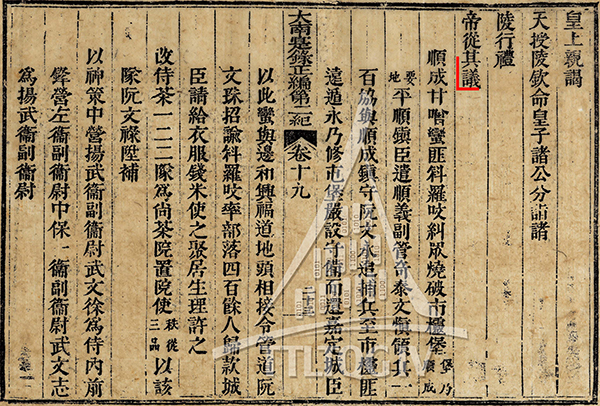 皇上親謁
天授陵欽命皇子諸公分詣諸
陵行禮
帝從其議
順成甘蠻匪科羅吱糾眾燒破市堡堡乃順成
要地平順鎮臣遣順義副管奇泰文愼領其一
石協與順成鎮守阮文永追捕兵至市匪
遠遁永乃修市堡嚴設守備而還嘉定城臣
大南寔錄正編第二紀 卷十九
以此蠻與邊和興福道地頭相接令管道阮
文珠招諭科羅吱率部落四百餘人歸款城
臣請給衣服錢米使之聚居生理許之
改侍茶一二三隊為尙茶院置院使秩從三品以該
隊阮文祿陞補
以神策中營揚武衞副衞尉武文徐為侍內前
鋒營左衞副衞尉中保一衞副衞尉武文志
為揚武衞副衞尉